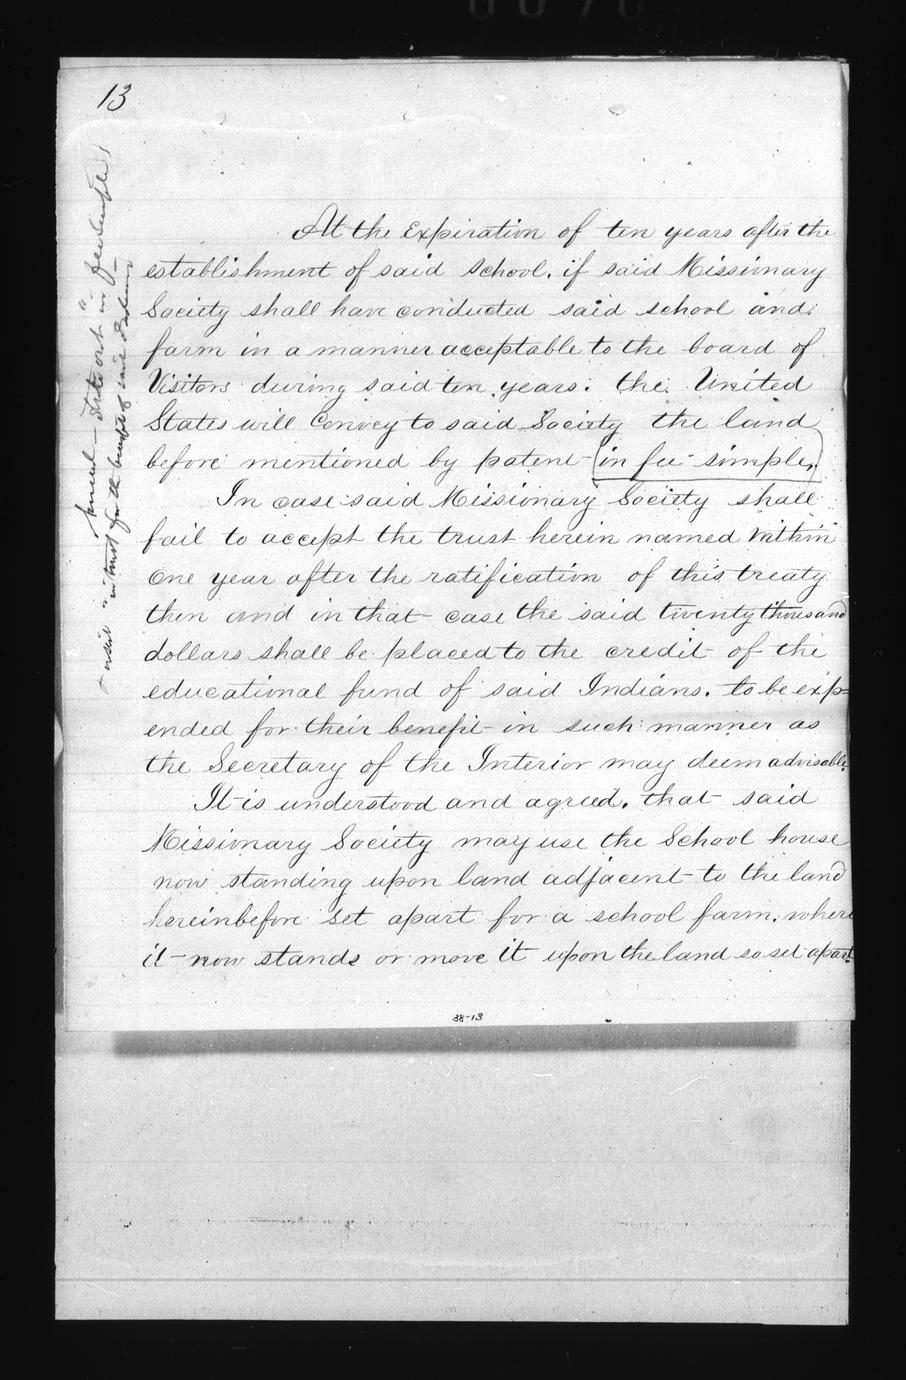 13
Amend – Strike out "in fee simple"
& insert "in trust for the benefit of said Indians"
At the Expiration of ten years after the
establishment of said School, if said Missionary
Society shall have conducted said school and
farm in a manner acceptable to the board of
Visitors during said ten years. the United
States will Convey to said Society the land
before mentioned by patent (in fee simple.)
In case said Missionary Society shall
fail to accept the trust herein named within
One year after the ratification of this treaty
then and in that case the said twenty thousand
dollars shall be placed to the credit of the
educational fund of said Indians. to be exp=
ended for their benefit in such manner as
the Secretary of the Interior may deem advisable.
It is understood and agreed. that said
Missionary Society may use the School house
now standing upon land adjacent to the land
hereinbefore set apart for a school farm. where
it now stands or move it upon the land so set apart.
38-13